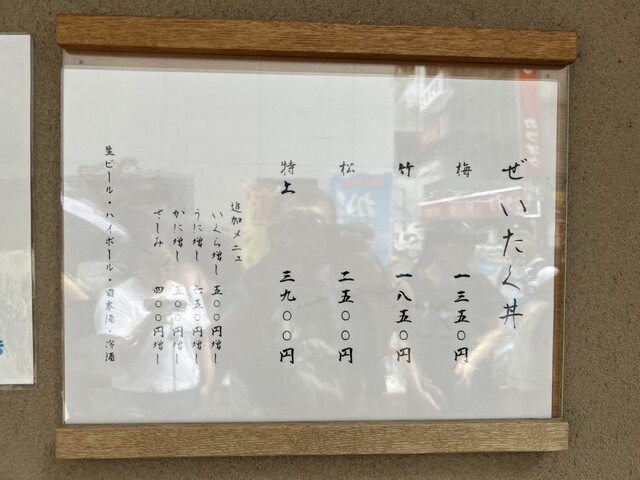 ぜいたく丼
梅 一三五〇円
竹 一八五〇円
松 二五〇〇円
特上 三九〇〇円
追加メニュ
いくら増し 五〇〇円増し
うに増し 六五〇円増し
かに増し 五〇〇円増し
さしみ 四〇〇円増し
生ビール・ハイボール・日本酒・冷酒